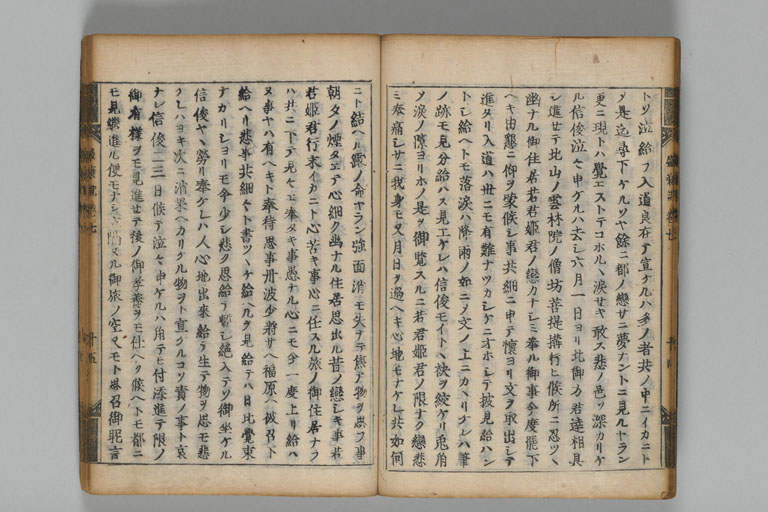 トソ泣給フ入道良在テ宣ケルハ多ノ者共ノ中ニイカニト
シテ是迄尋下ケルソヤ餘ニ都ノ戀サニ夢ナントニ見ルヤラン
更ニ現トハ覺エストテコホル丶涙サヤ敢ス悲ノ色ソ深カリケ
ル信俊泣々申ケルハ去シ六月一日ヨリ北御方若君達相具
シ進セテ北山ノ雲林院ノ僧坊菩提講行ヒ候所ニ忍ツ丶
幽ナル御住居若君姫君ノ戀カナシミ奉ル御事今度罷下
ヘキ由懇ニ仰ヲ蒙候シ事共細ニ申テ懷ヨリ文ヲ取出シテ
進タリ入道ハ世ニモ有難ナツカシケニオホシテ披見給ハン
トシ給ヘトモ落涙ハ降雨ノ如ニテ文ノ上ニカ丶リケレハ筆
ノ跡モ見分給ハス見エケレハ信俊モイト丶袂ヲ絞ケリ兎角
ツ涙ノ隙ヨリホノ是ヲ御覽スルニ若君姫君ノ限ナク戀悲
ミ奉痛シサニ我身モ又月日ヲ過ヘキ心地モナケレ共如何
ニト結ヘル露ノ命ヤラン強面消モ失テ焦テ物ヲ思フ事
朝夕ノ煙タエテ心細ク幽ナル住居思出ル昔ノ戀シキ事若
君姫君行末イカニト心苦キ事心ニ任スル旅ノ御住居ナラ
ハ共ニ下テ見モシ奉タキ事愚ナル心ニモ今一度上リ給ハ
ヌ事ヤハ有ヘキト奉待思事丹波少將サヘ福原ヘ被召下
給ヘリ悲事共細々ト書ツ丶ケ給ヘルヲ見給テハ日比覺束
ナカリシヨリモ今少シ悲ク思給テ暫シ絶入テソ御坐ケル
信俊ヤ丶勞リ奉ケレハ人心地出來給テ生テ物ヲ思モ悲
クレハヨキ次ニ消果ヘカリケル物ヲト宣ケルコソ責ノ事ト哀
ナレ信俊二三日候テ泣々申ケルハ角テモ付添進テ限ノ
御有樣ヲモ見進セテ後ノ御孝養ヲモ仕ヘク候ヘトモ都ニ
モ見繼進ル便モナシ
隔ヌル御旅ノ空又モト思召御眤言